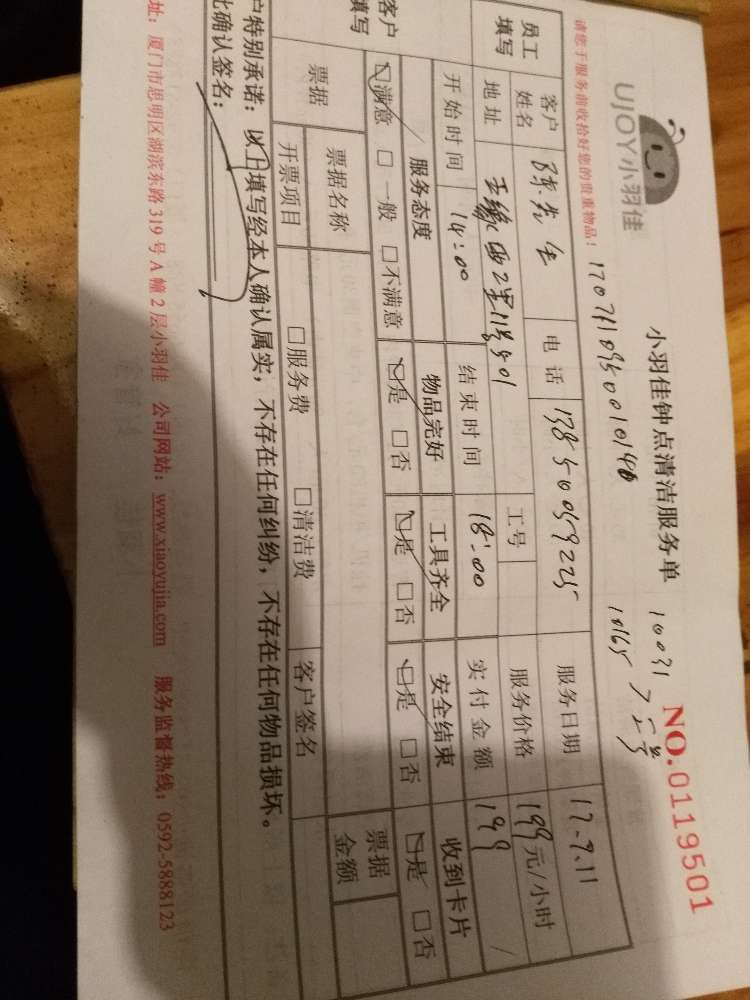 UJOY小羽佳
小羽佳钟点清洁服务单
NO.0119501
10031
10165
工号
请您于服务前收拾好您的贵重物品！
员工填写
客户姓名
陈先生
电话
服务日期
17.9.11
地址
2里11号501
工号
服务价格
199元/小时
开始时间
14:00
结束时间
18:00
实付金额
199
客户填写
服务态度
物品完好
工具齐全
安全结束
收到卡片
☑满意 □一般 □不满意
☑是 □否
☑是 □否
☑是 □否
☑是 □否
票据
票据名称
票据金额
开票项目
□服务费
□清洁费
客户签名
户特别承诺：以上填写经本人确认属实，不存在任何纠纷，不存在任何物品损坏。
此确认签名：
址：厦门市思明区湖滨东路 319 号 A 幢 2 层小羽佳 公司网站：www.xiaoyujia.com 服务监督热线：0592-5888123